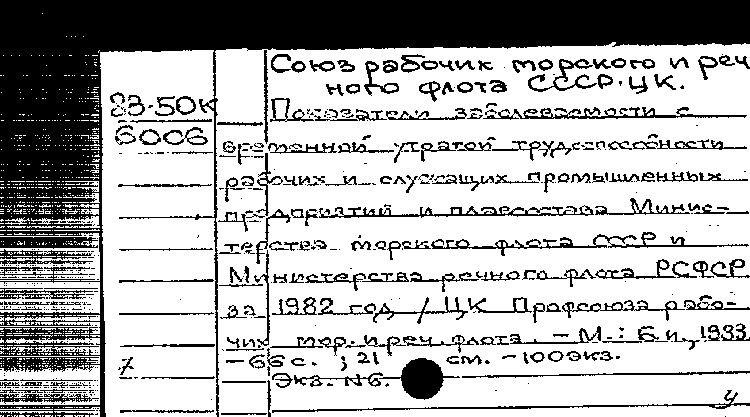 Союз рабочих морского и реч
ного флота СССР. ЦК.
83-50к
6006
Показатели заболеваемости с
временной утратой трудоспособности
рабочих и служащих промышленных
предприятий и плавсостава Минис-
терства морского флота СССР и
Министерства речного флота РСФСР
за 1982 год / ЦК Профсоюза рабо-
чих мор. и реч. флота. - М.: Б.и., 1983.
- 66 с. ; 21 см. - 100экз.
Экз. №6.